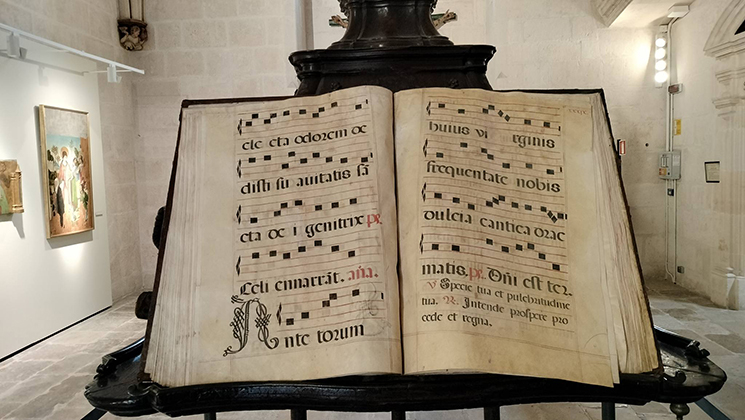 ele cta odorem de
disti su avitatis sã
cta de i genitrix ps.
Celi ennarrãt. aña.
Ante torum
huius vi rginis
frequentate nobis
dulcia cantica drac
matis. ps. Dñi est ter.
V Specie tua et pulchritudine
tua. R. Intende prospere pro
cede et regna.